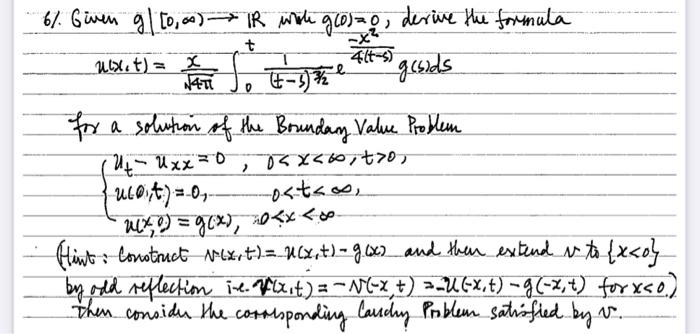 6/. Given g| [0,∞) → IR with g(0)=0, derive the formula
u(x,t) = x/√4π ∫₀ᵗ 1/(t-s)^3/2 e^(-x²/4(t-s)) g(s)ds
for a solution of the Boundary Value Problem
u_t - u_xx = 0 , 0<x<∞, t>0,
u(0,t) = 0, 0<t<∞,
u(x,0) = g(x), 0<x<∞
(Hint: Construct v(x,t) = u(x,t) - g(x) and then extend v to {x<0}
by odd reflection i.e. v(x,t) = -v(-x,t) = -u(-x,t) - g(-x,t) for x<0.)
Then consider the corresponding Cauchy Problem satisfied by v.